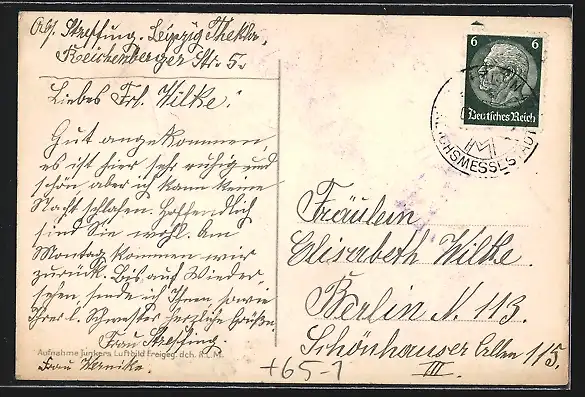 Abs. Streffing. Leipzig Thekla,
Reichenberger Str. 5.
Liebes Frl. Wilke!
Gut angekommen,
es ist hier sehr ruhig und
schön, aber ich kann keine
Nacht schlafen. Hoffendlich
sind Sie wohl. Am
Montag kommen wir
zurück. Bis auf Wieder-
sehen, sende ich Ihnen, sowie
Ihrer l. Schwester herzliche Grüße
Frau Streffing.
Aufnahme Junkers Luftbild Freigeg. dch. R.L.M.
Frau Wernicke.
6 6
Deutsches Reich
REICHSMESSESTADT
Fräulein
Elisabeth Wilke
Berlin N. 113.
Schönhauser Allee 115.
III.
+65-1